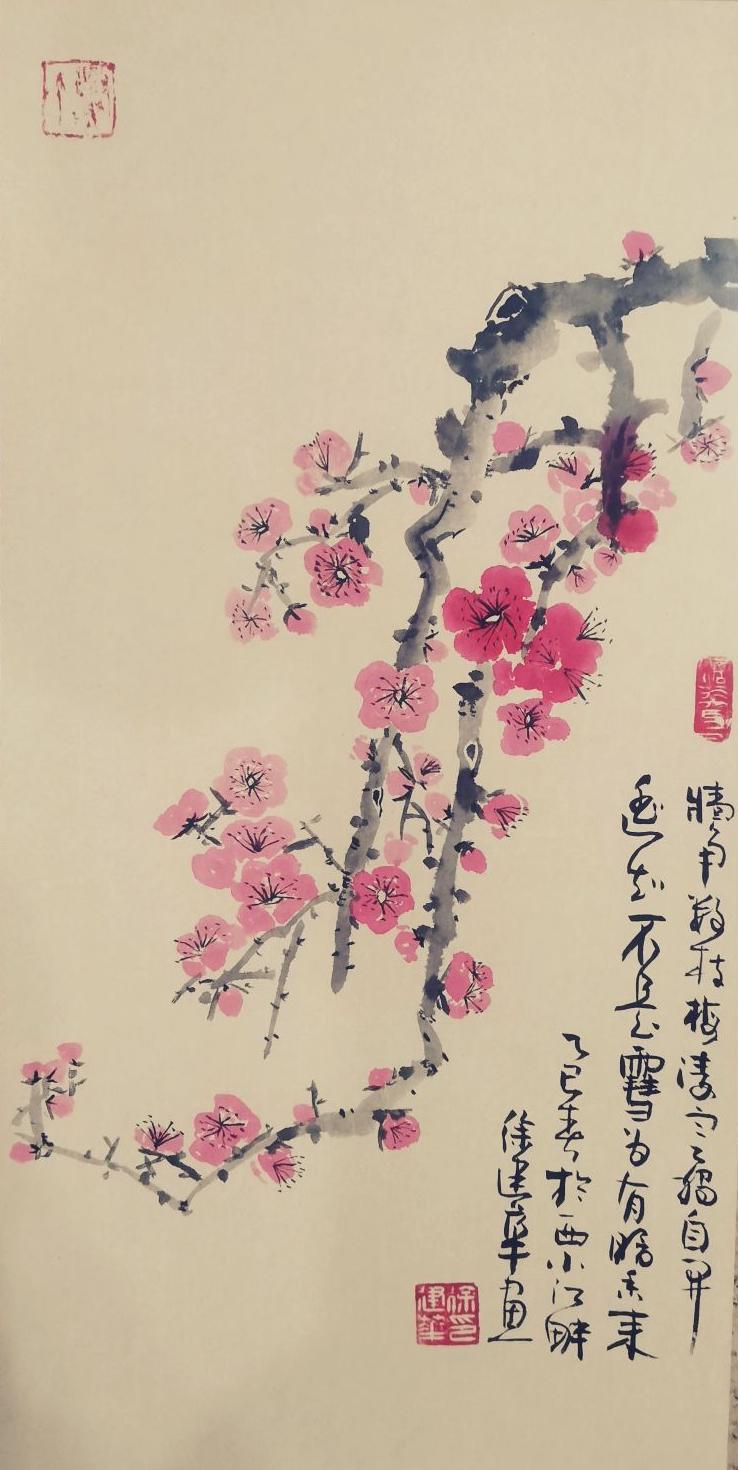 牆角数枝梅凌寒独自开
遥知不是雪为有暗香来
乙巳春於西小江畔
徐建华画
徐建华印